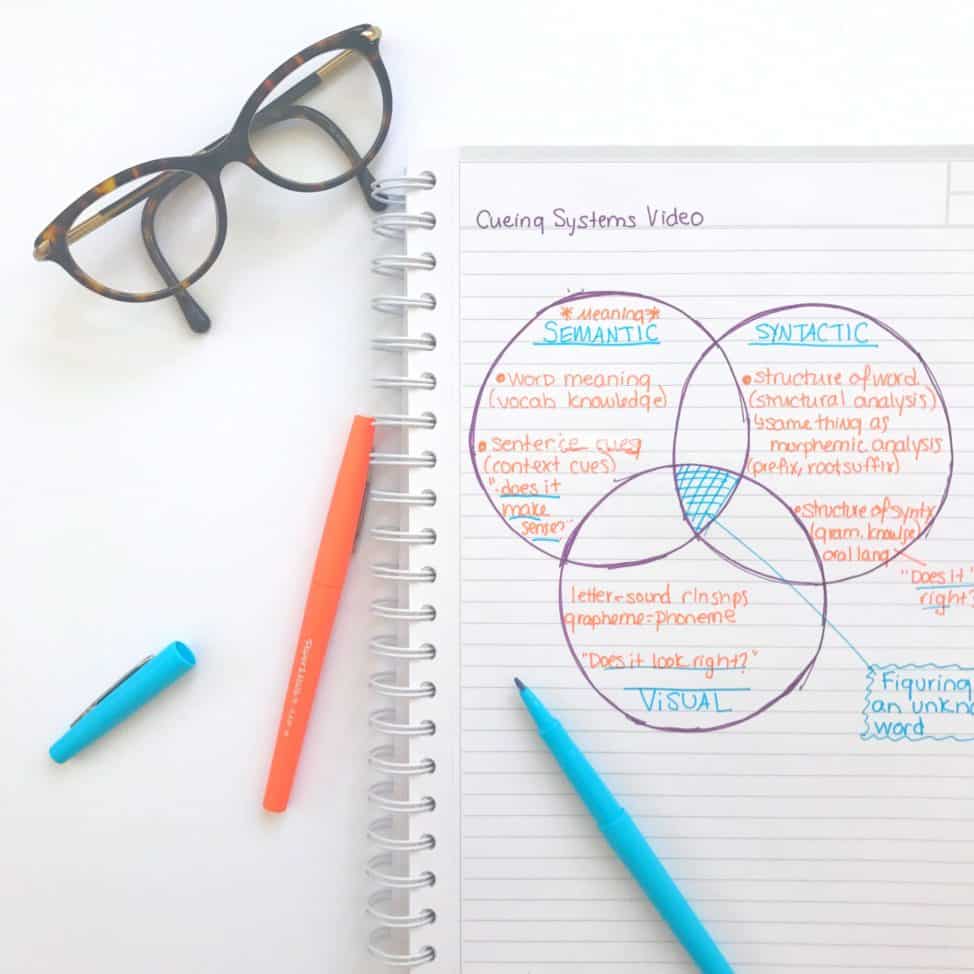 Cueing Systems Video
*Meaning*
SEMANTIC
• word meaning
(vocab knowledge)
• sentence cues
(context cues)
"does it
make
sense?"
SYNTACTIC
• structure of word
(structural analysis)
↳ same thing as
morphemic analysis
(prefix, root suffix)
• structure of syntx
(gram, knowlse)
oral lang
"Does it
right?
letter=sound rlnshps
grapheme=phoneme
"Does it look right?"
VISUAL
Figuring
an unkno
word
Paper